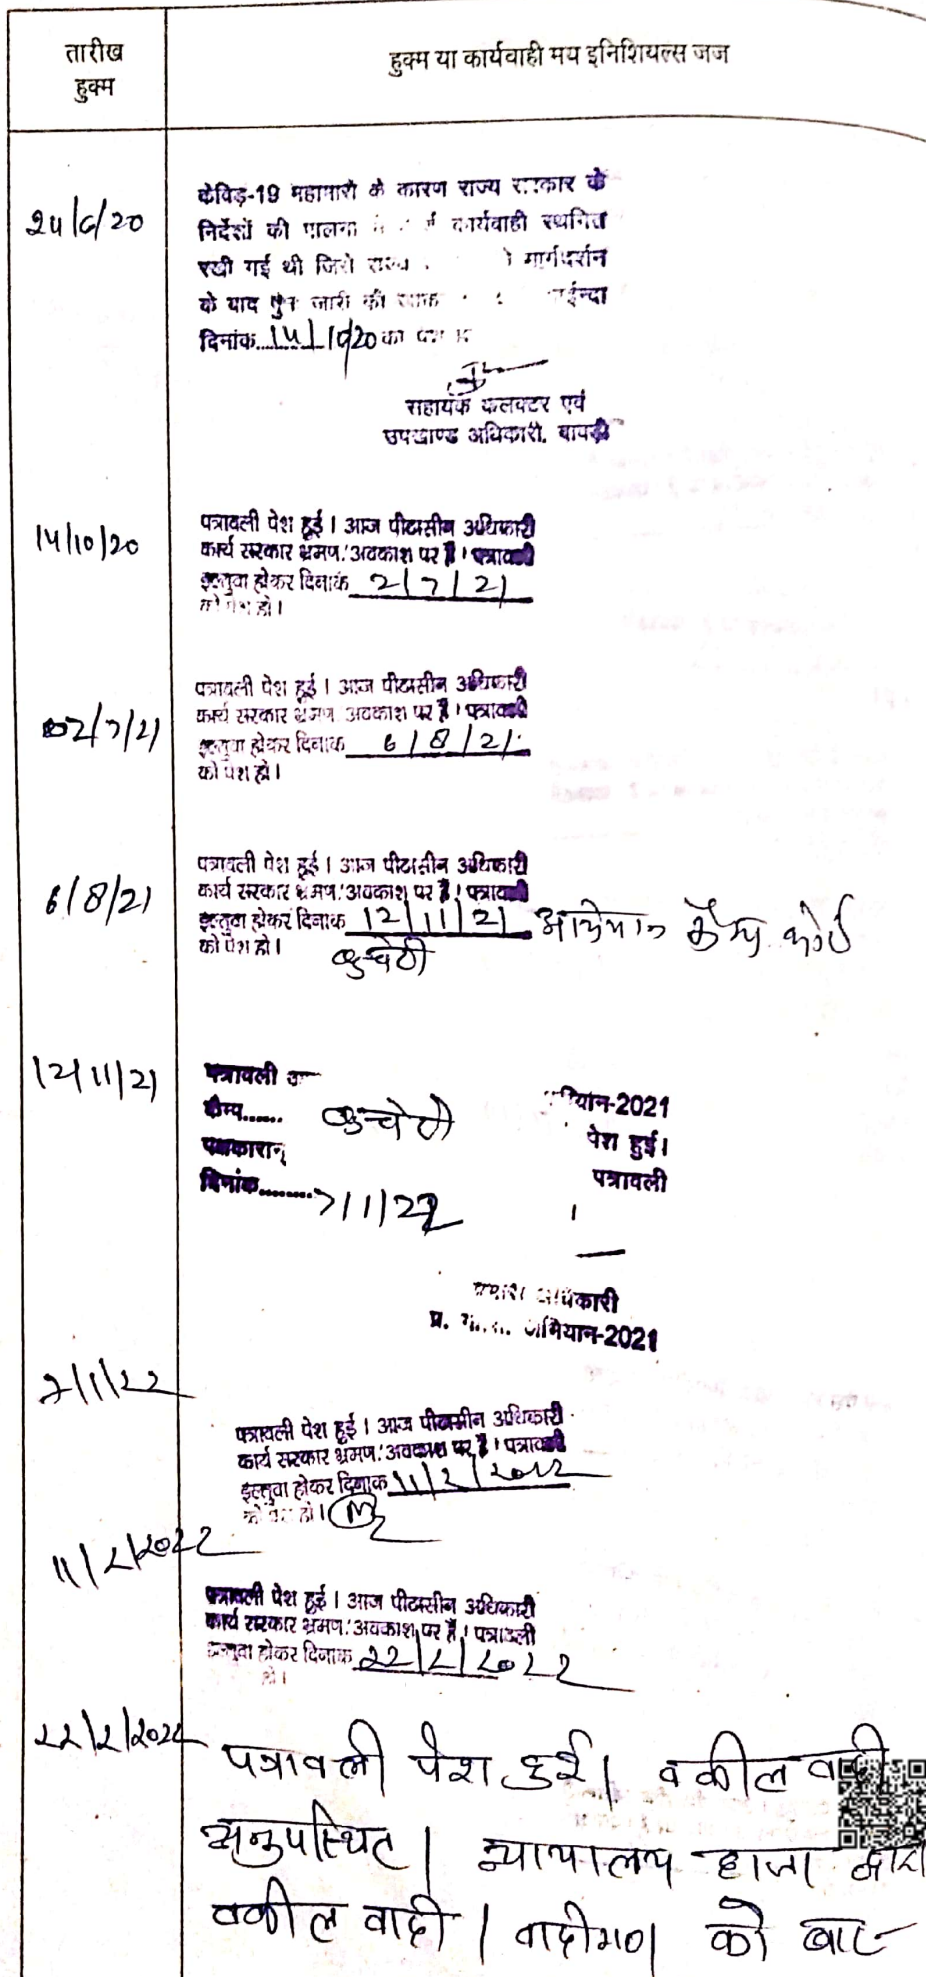 तारीख
हुक्म
हुक्म या कार्यवाही मय इनिशियल्स जज
24/6/20
कोविड-19 महामारी के कारण राज्य सरकार के
निर्देशों की पालना में कार्यवाही स्थगित
रखी गई थी जिसे राज्य मार्गदर्शन
के बाद पुनः जारी की आईन्दा
दिनांक....14/10/20 को पेश
सहायक कलक्टर एवं
उपखण्ड अधिकारी, बावड़ी
14/10/20
पत्रावली पेश हुई। आज पीठासीन अधिकारी
कार्य सरकार भ्रमण/अवकाश पर है। पत्रावली
इल्तुवा होकर दिनांक 2/7/21
को पेश हो।
02/7/21
पत्रावली पेश हुई। आज पीठासीन अधिकारी
कार्य सरकार भ्रमण/अवकाश पर है। पत्रावली
इल्तुवा होकर दिनांक 6/8/21
को पेश हो।
6/8/21
पत्रावली पेश हुई। आज पीठासीन अधिकारी
कार्य सरकार भ्रमण/अवकाश पर है। पत्रावली
इल्तुवा होकर दिनांक 12/11/21 अभियान कैम्प कोर्ट
को पेश हो।
12/11/21
पत्रावली अभियान-2021
कैम्प...... पेश हुई।
पक्षकारान् पत्रावली
दिनांक.........7/1/22
अधिकारी
प्र. अभियान-2021
7/1/22
पत्रावली पेश हुई। आज पीठासीन अधिकारी
कार्य सरकार भ्रमण/अवकाश पर है। पत्रावली
इल्तुवा होकर दिनांक 11/2/2022
को पेश हो।
11/2/2022
पत्रावली पेश हुई। आज पीठासीन अधिकारी
कार्य सरकार भ्रमण/अवकाश पर है। पत्रावली
इल्तुवा होकर दिनांक 22/2/2022
हो।
22/2/2022
पत्रावली पेश हुई। वकील वादी
अनुपस्थित। न्यायालय हाजा द्वारा
वकील वादी / वादीगण को बार-